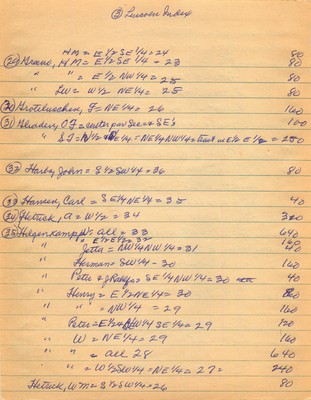 ③ Index
HM = E1/2 SE1/4 = 24 80
(29) HM = E1/2 SE1/4 = 23 80
" " = E1/2 NW1/4 = 25 80
" = W1/2 NW1/4 = 25 80
(30) F = NE1/4 = 26 160
(31) = SE's 160
" NE1/4 NW1/4 = E1/2 E1/2 =
(32) John = S1/2 SW1/4 = 36 80
(33) Carl = SE1/4 NE1/4 = 35 40
(34) Hettick, A = W1/2 = 34 320
(35) = all = 33 640
" " E1/2 E1/2 = 32 160
" Jetta = NW1/4 NW1/4 = 31 40
" Herman = SW1/4 - 30 160
" Peter & = SE1/4 NW1/4 = 30 40
" Henry = E1/2 NE1/4 = 30 80
" " = NW1/4 = 29 160
" Peter = SE1/4 = 29 120
" W = NE1/4 = 29 160
" " = all 28 640
" " = W1/2 SW1/4 = NE1/4 = 27 = 240
Hettick, WM = S1/2 SW1/4 = 26 80